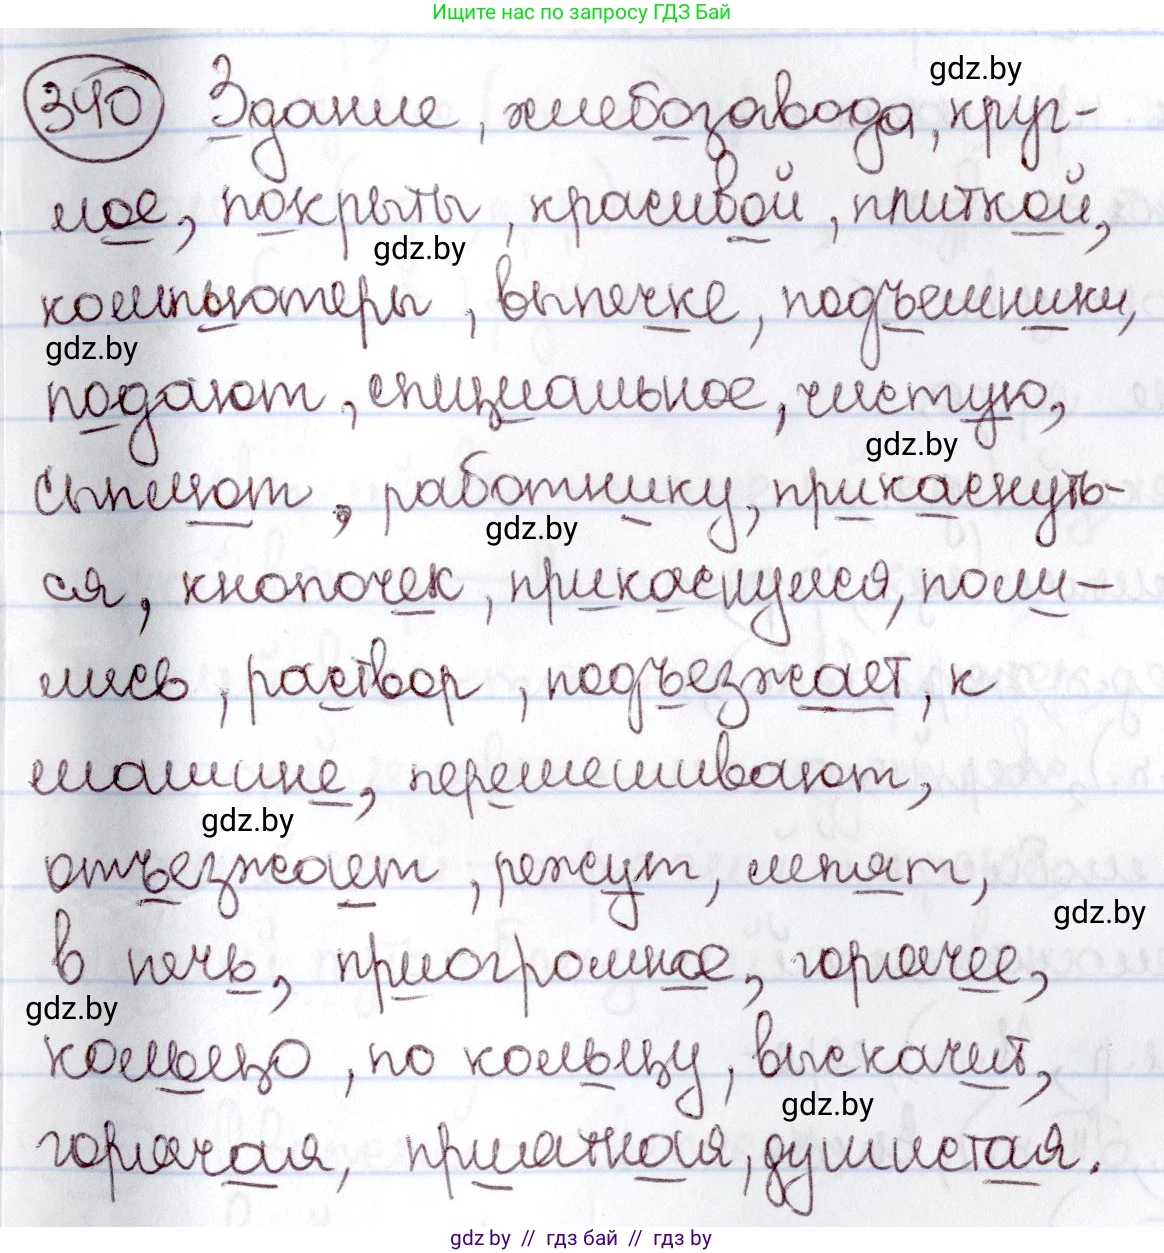 Ищите нас по запросу ГДЗ Бай
340 Здание, хлебозавода, круг-
gdz.by
лое, покрыты, красивой, плиткой,
gdz.by
компьютеры, выпечке, подъемники,
gdz.by
подают, специальное, чистую,
gdz.by
сыплют, работнику, прикоснуть-
gdz.by
ся, кнопочек, прикаснулся, поли-
лись, раствор, подъезжает, к
машине, перемешивают,
gdz.by
отъезжает, режут, лепят,
gdz.by
в печь, приогромное, горячее,
gdz.by
кольцо, по кольцу, выскачит,
gdz.by
горячая, приятная, душистая.
gdz.by // гдз бай // гдз by